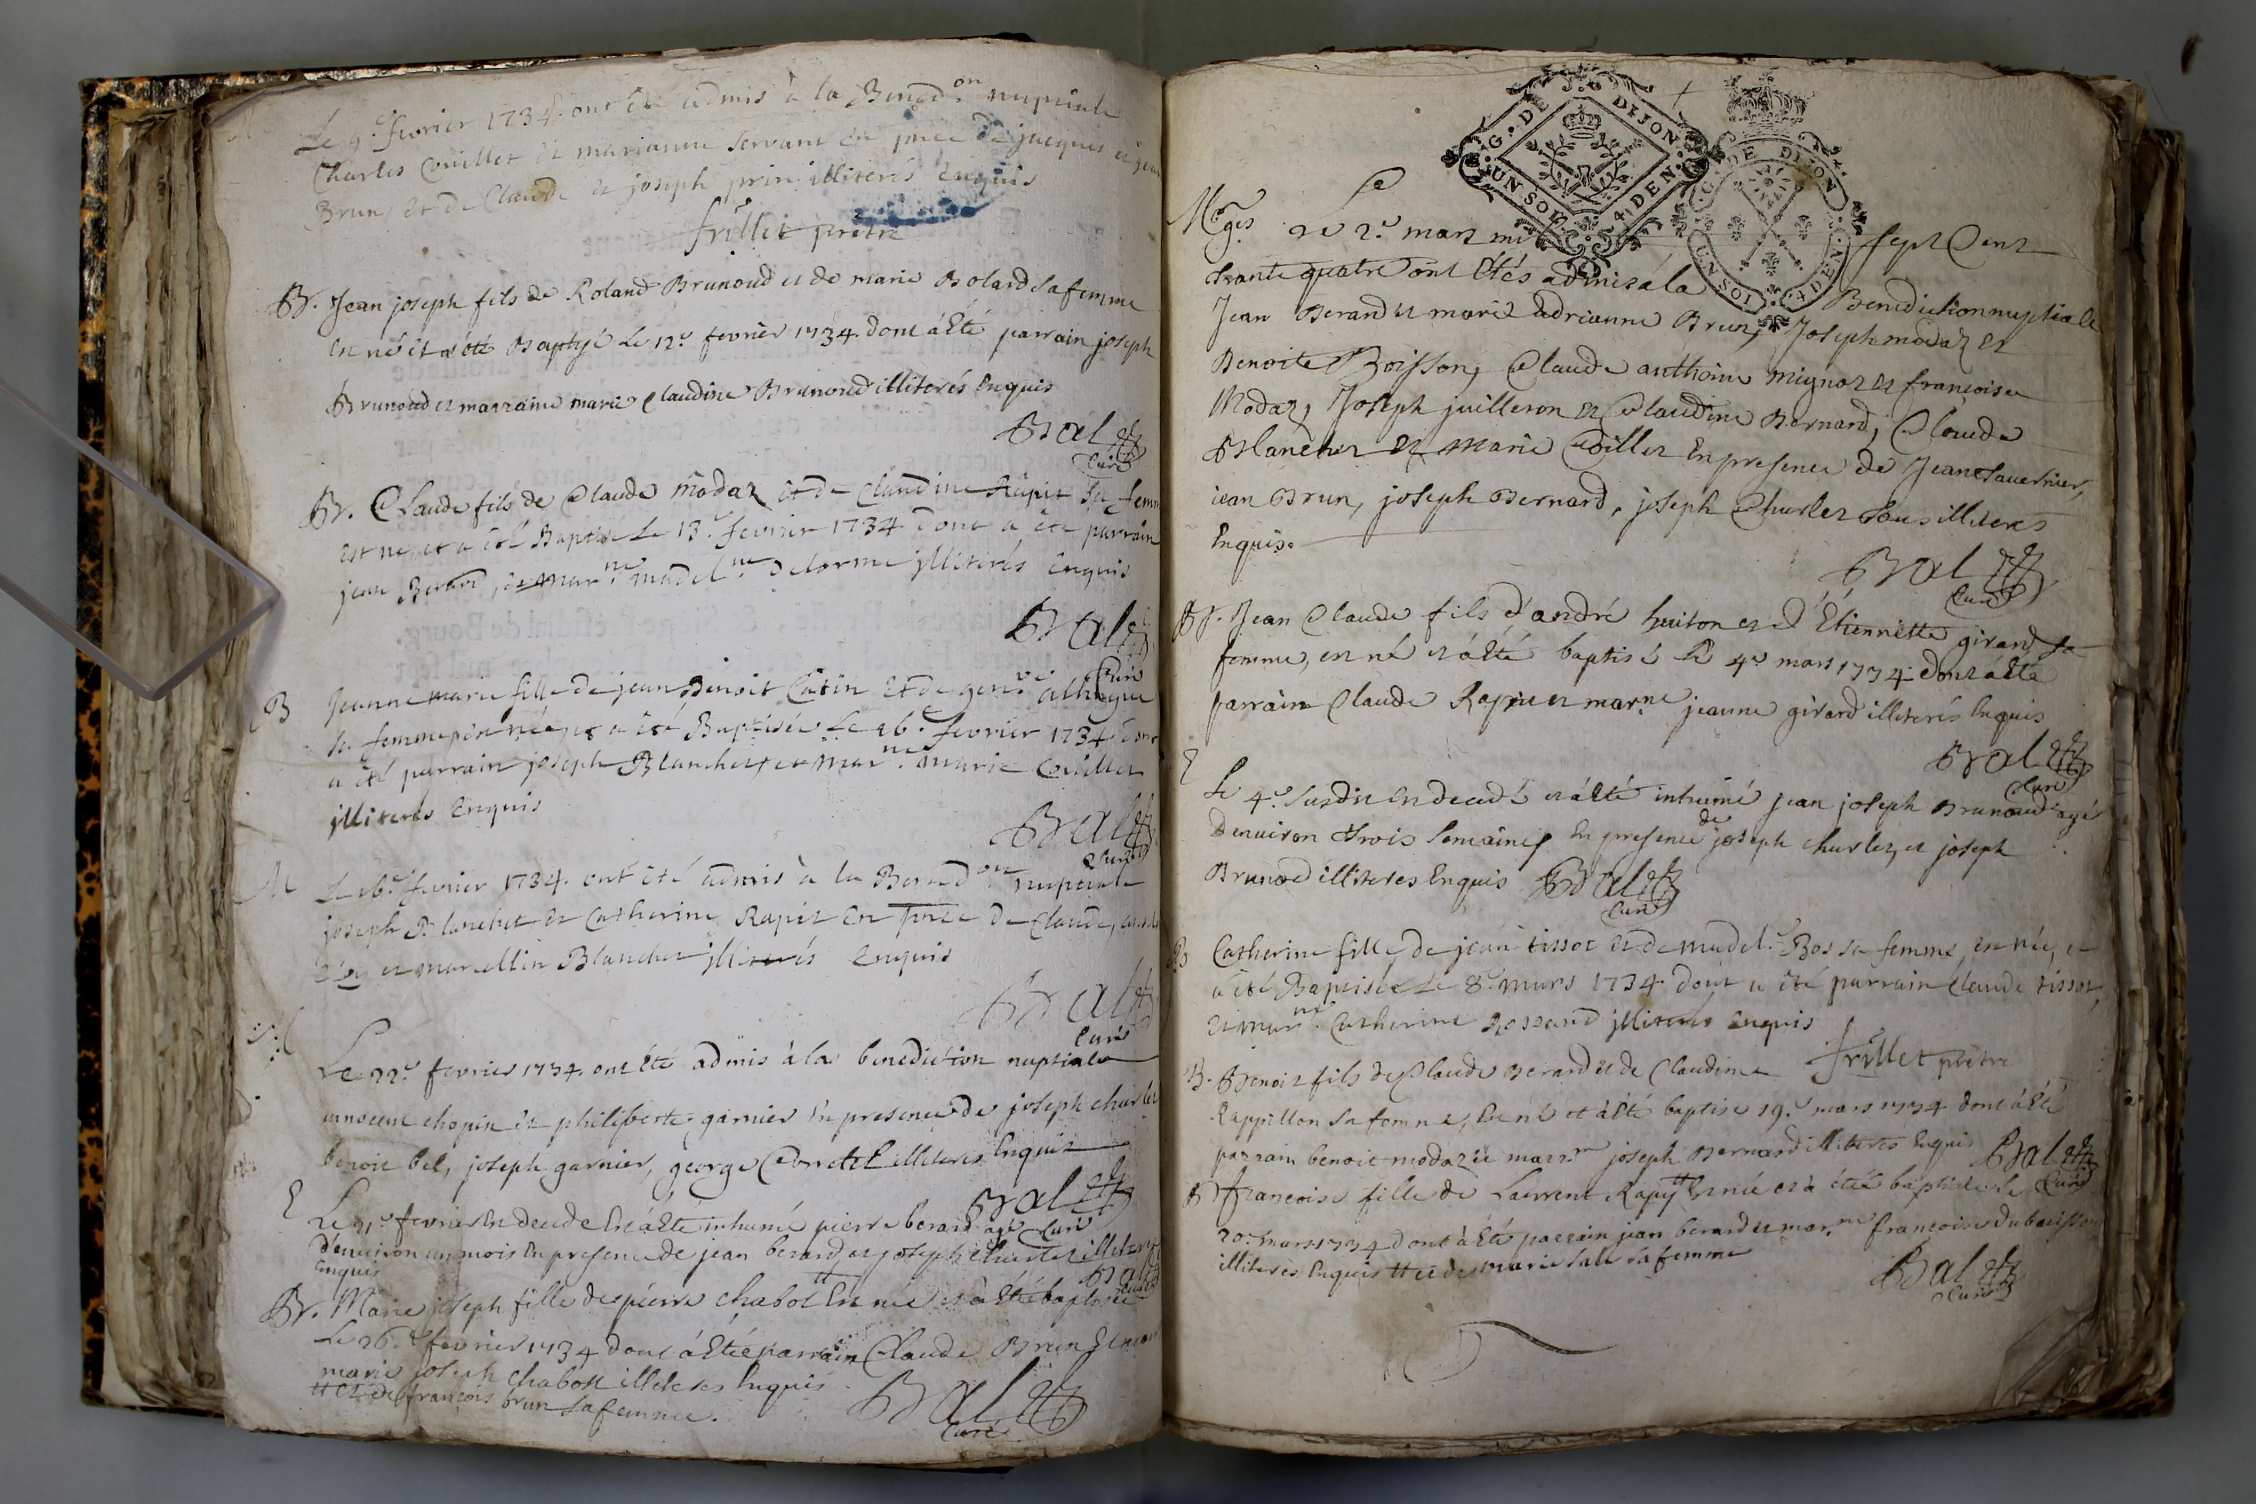 Le 9.e fevrier 1734. ont été admis à la Bened.on nuptiale
Charles Cuillet et marianne Servant en pnce de jacques et jean
Brun, et de Claude et joseph prin illiterés Enquis
frillet prêtre
B. Jean joseph fils de Roland Brunoud et de marie Bolard sa femme
est né et a été Baptisé Le 12.e fevrier 1734. dont a Eté parrain joseph
Brunoud et marraine marie Claudine Brunoud illiterés Enquis
Bral
Curé
B. Claude fils de Claude modaz et de Claudine Rapit sa femme
est né, et a été Baptisé Le 13.e fevrier 1734 dont a été parrain
jean Berard, et mar.ne madel.ne delorme illiterés Enquis
Bral
Curé
B Jeanne marie fille de jean Benoit Catin et de gen.ve
sa femme est née, et a été Baptisée Le 16.e fevrier 1734 dont
a été parrain joseph Blanchet, et mar.ne marie Cuillet
illiterés Enquis
Bral
Curé
M Le 16.e fevrier 1734. ont été admis à la Bened.on nuptiale
joseph Blanchet et Catherine Rapit en pnce de Claude,
et marcellin Blanchet illiterés Enquis
Bral
Curé
Le 22.e fevrier 1734. ont été admis à la benediction nuptiale
innocent chopin et philiberte garnier En presence de joseph charles
benoit bel, joseph garnier, george illiteres Enquis
Bral
Curé
E Le fevrier En decedé Et a Eté inhumé pierre berard agé
d'enuiron un mois En presence de jean berard et joseph charlet illeteres
Enquis
Bral
Curé
B. Marie joseph fille de pierre chabot tt Est née et a Eté baptisée
Le 26.e fevrier 1734 dont a Eté parrain Claude Brun Et mar
marie joseph chabost illeteres Enquis
tt et de françois brun sa femme.
Bral
Curé
G. DE DIJON
UN SOL 4 DEN
G. DE DIJON
UN SOL 4 DEN
M.ges Le 2.e mars mil sept Cent
trante quatre ont Etés admis á la Benediction nuptiale
Jean Berard et marie adrianne Brun, Joseph modaz et
Benoite Boisson, Claude anthoine mignot et francoise
Modaz, Joseph juilleron et Claudine Bernard, Claude
Blanchet et marie Cuillet En presence de Jean tavernier,
jean Brun, joseph Bernard, joseph Charlet tous illiteres
Enquis.
Bral
Curé
B. Jean Claude fils d'andré huiton et d'Etiennette girard sa
femme, est né et a Eté baptisé Le 4.e mars 1734 dont a Eté
parrain Claude Rapit et mar.ne jeanne girard illiterés Enquis
Bral
Curé
E Le 4.e susdit En decedé et a Eté inhumé jean joseph Brunoud agé
denuiron trois semaines En presence de joseph charlet, et joseph
Brunod illiteres Enquis Bral
Curé
B Catherine fille de jean tissot et de madel.e Bos sa femme, est née, et
a été Baptisée Le 8.e mars 1734. dont a été parrain Claude tissot,
et mar.ne Catherine Rossand illiterés Enquis
frillet prêtre
B. Benoit fils de Claude Berard et de Claudine
Rappillon sa femme, Est né et a Eté baptisé 19.e mars 1734 dont a Eté
parrain benoit modaz et marr.ne joseph Bernard illiterés Enquis Bral
Curé
B françoise fille de Laurent Rapy tt Est née et a étée baptisée Le
20.e mars 1734 dont a Eté parrain jean berard et mar.ne françoise dubuisson
illiteres Enquis tt et de marie sale sa femme
Bral
Curé